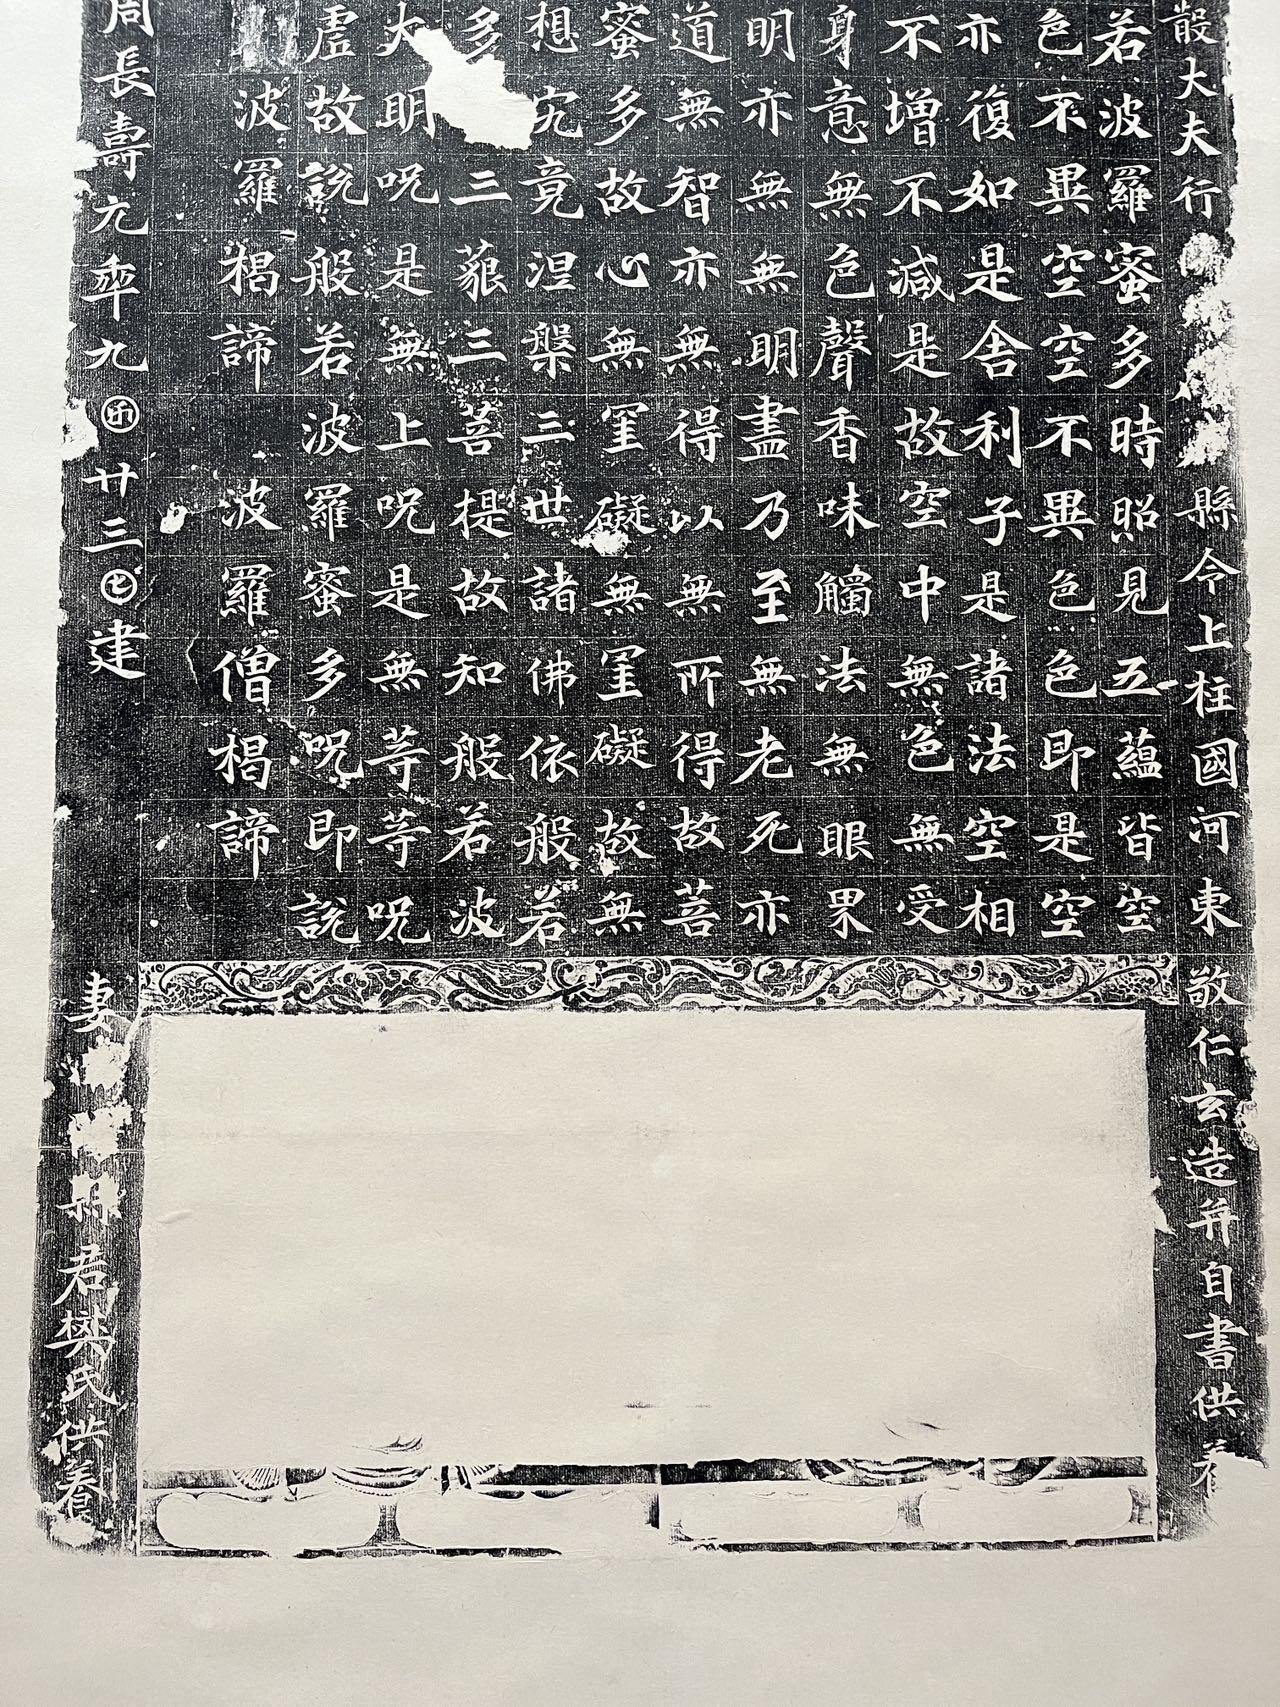 散大夫行縣令上柱國河東敬仁玄造并自書供養
若波羅蜜多時照見五蘊皆空
色不異空空不異色色即是空
亦復如是舍利子是諸法空相
不增不減是故空中無色無受
身意無色聲香味觸法無眼界
明亦無無明盡乃至無老死亦
道無智亦無得以無所得故菩
蜜多故心無罣礙無罣礙故無
想究竟涅槃三世諸佛依般若
多三藐三菩提故知般若波
大明呪是無上呪是無等等呪
虛故說般若波羅蜜多呪即說
波羅揭諦 波羅僧揭諦
周長壽元年九月廿三日建
妻縣君樊氏供養